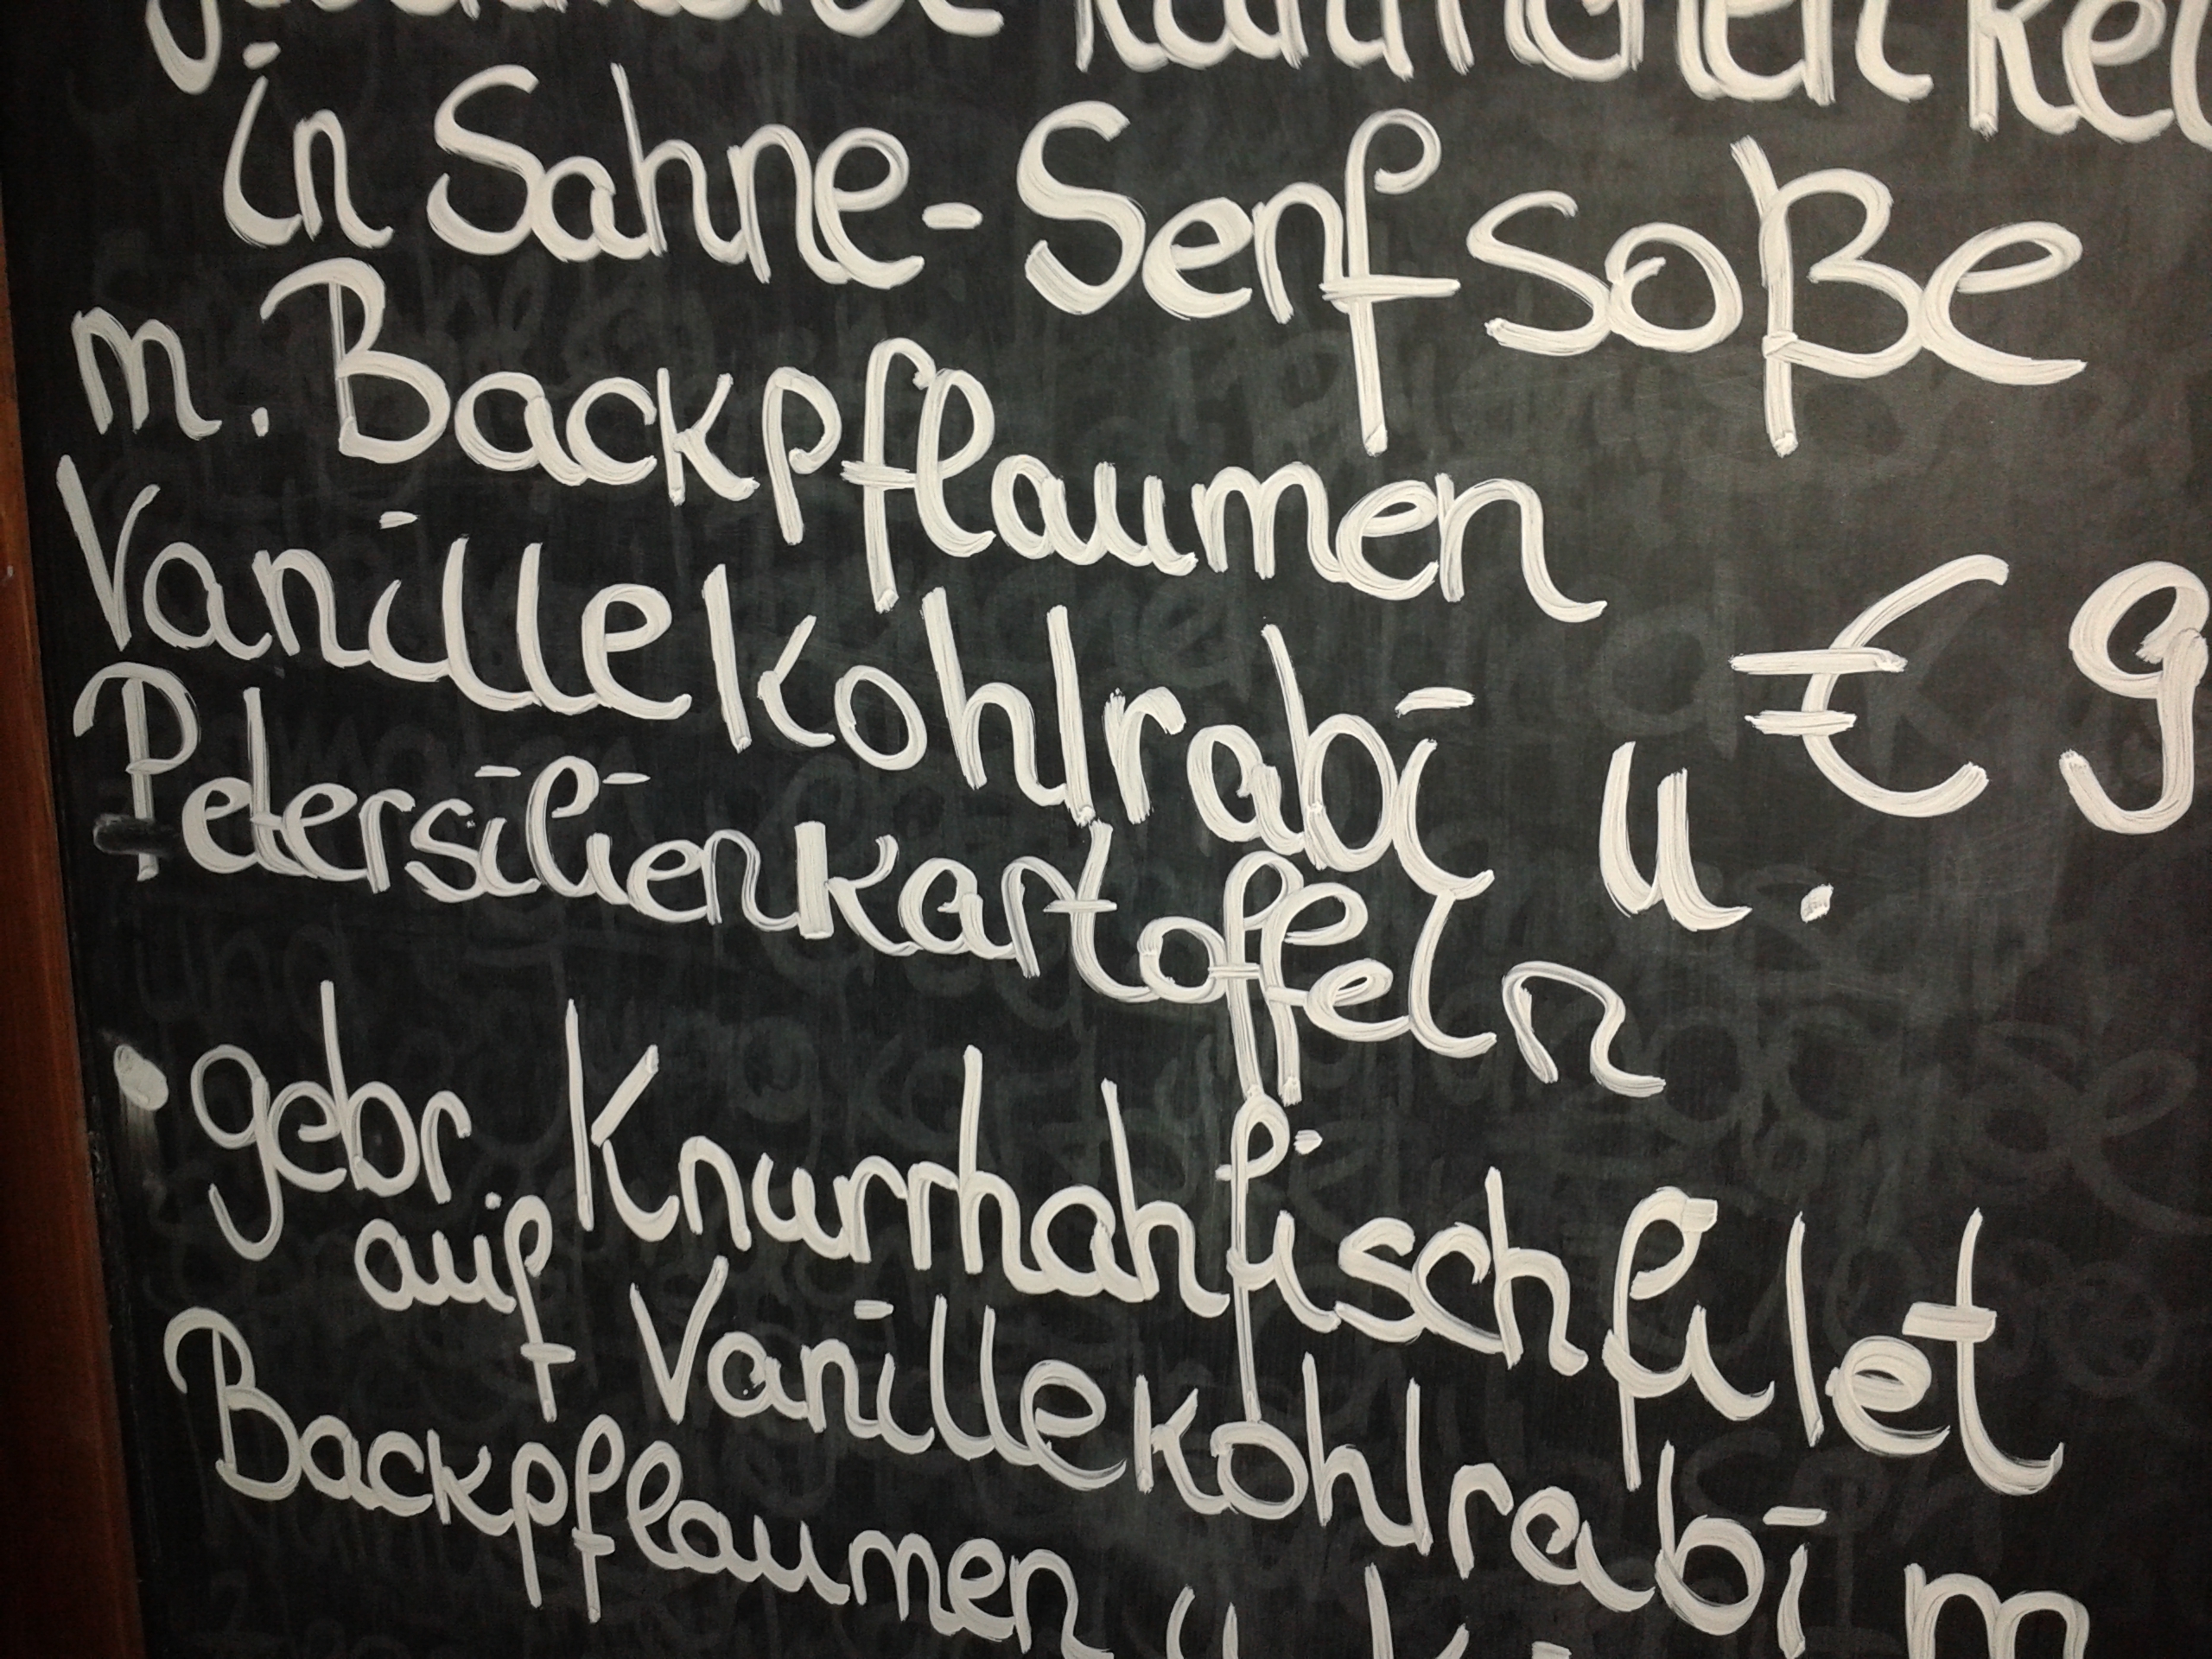 in Sahne-Senfsoße
m. Backpflaumen
Vanillekohlrabi u. € 9
Petersilienkartoffeln
• gebr. Knurrhahfischfilet
auf Vanillekohlrabi m
Backpflaumen u